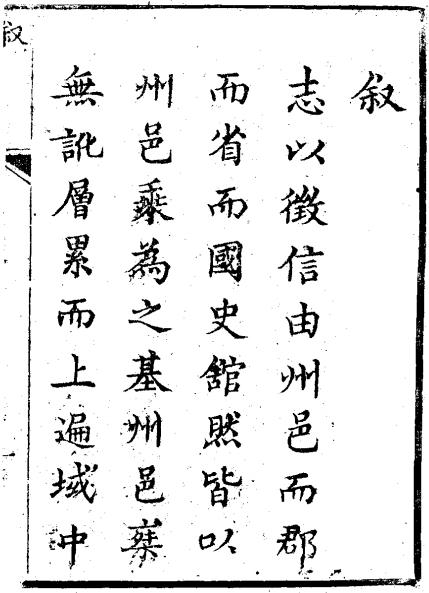 叙
志以徵信由州邑而郡
而省而國史舘然皆以
州邑乘為之基州邑乘
無訛層累而上遍域中
叙